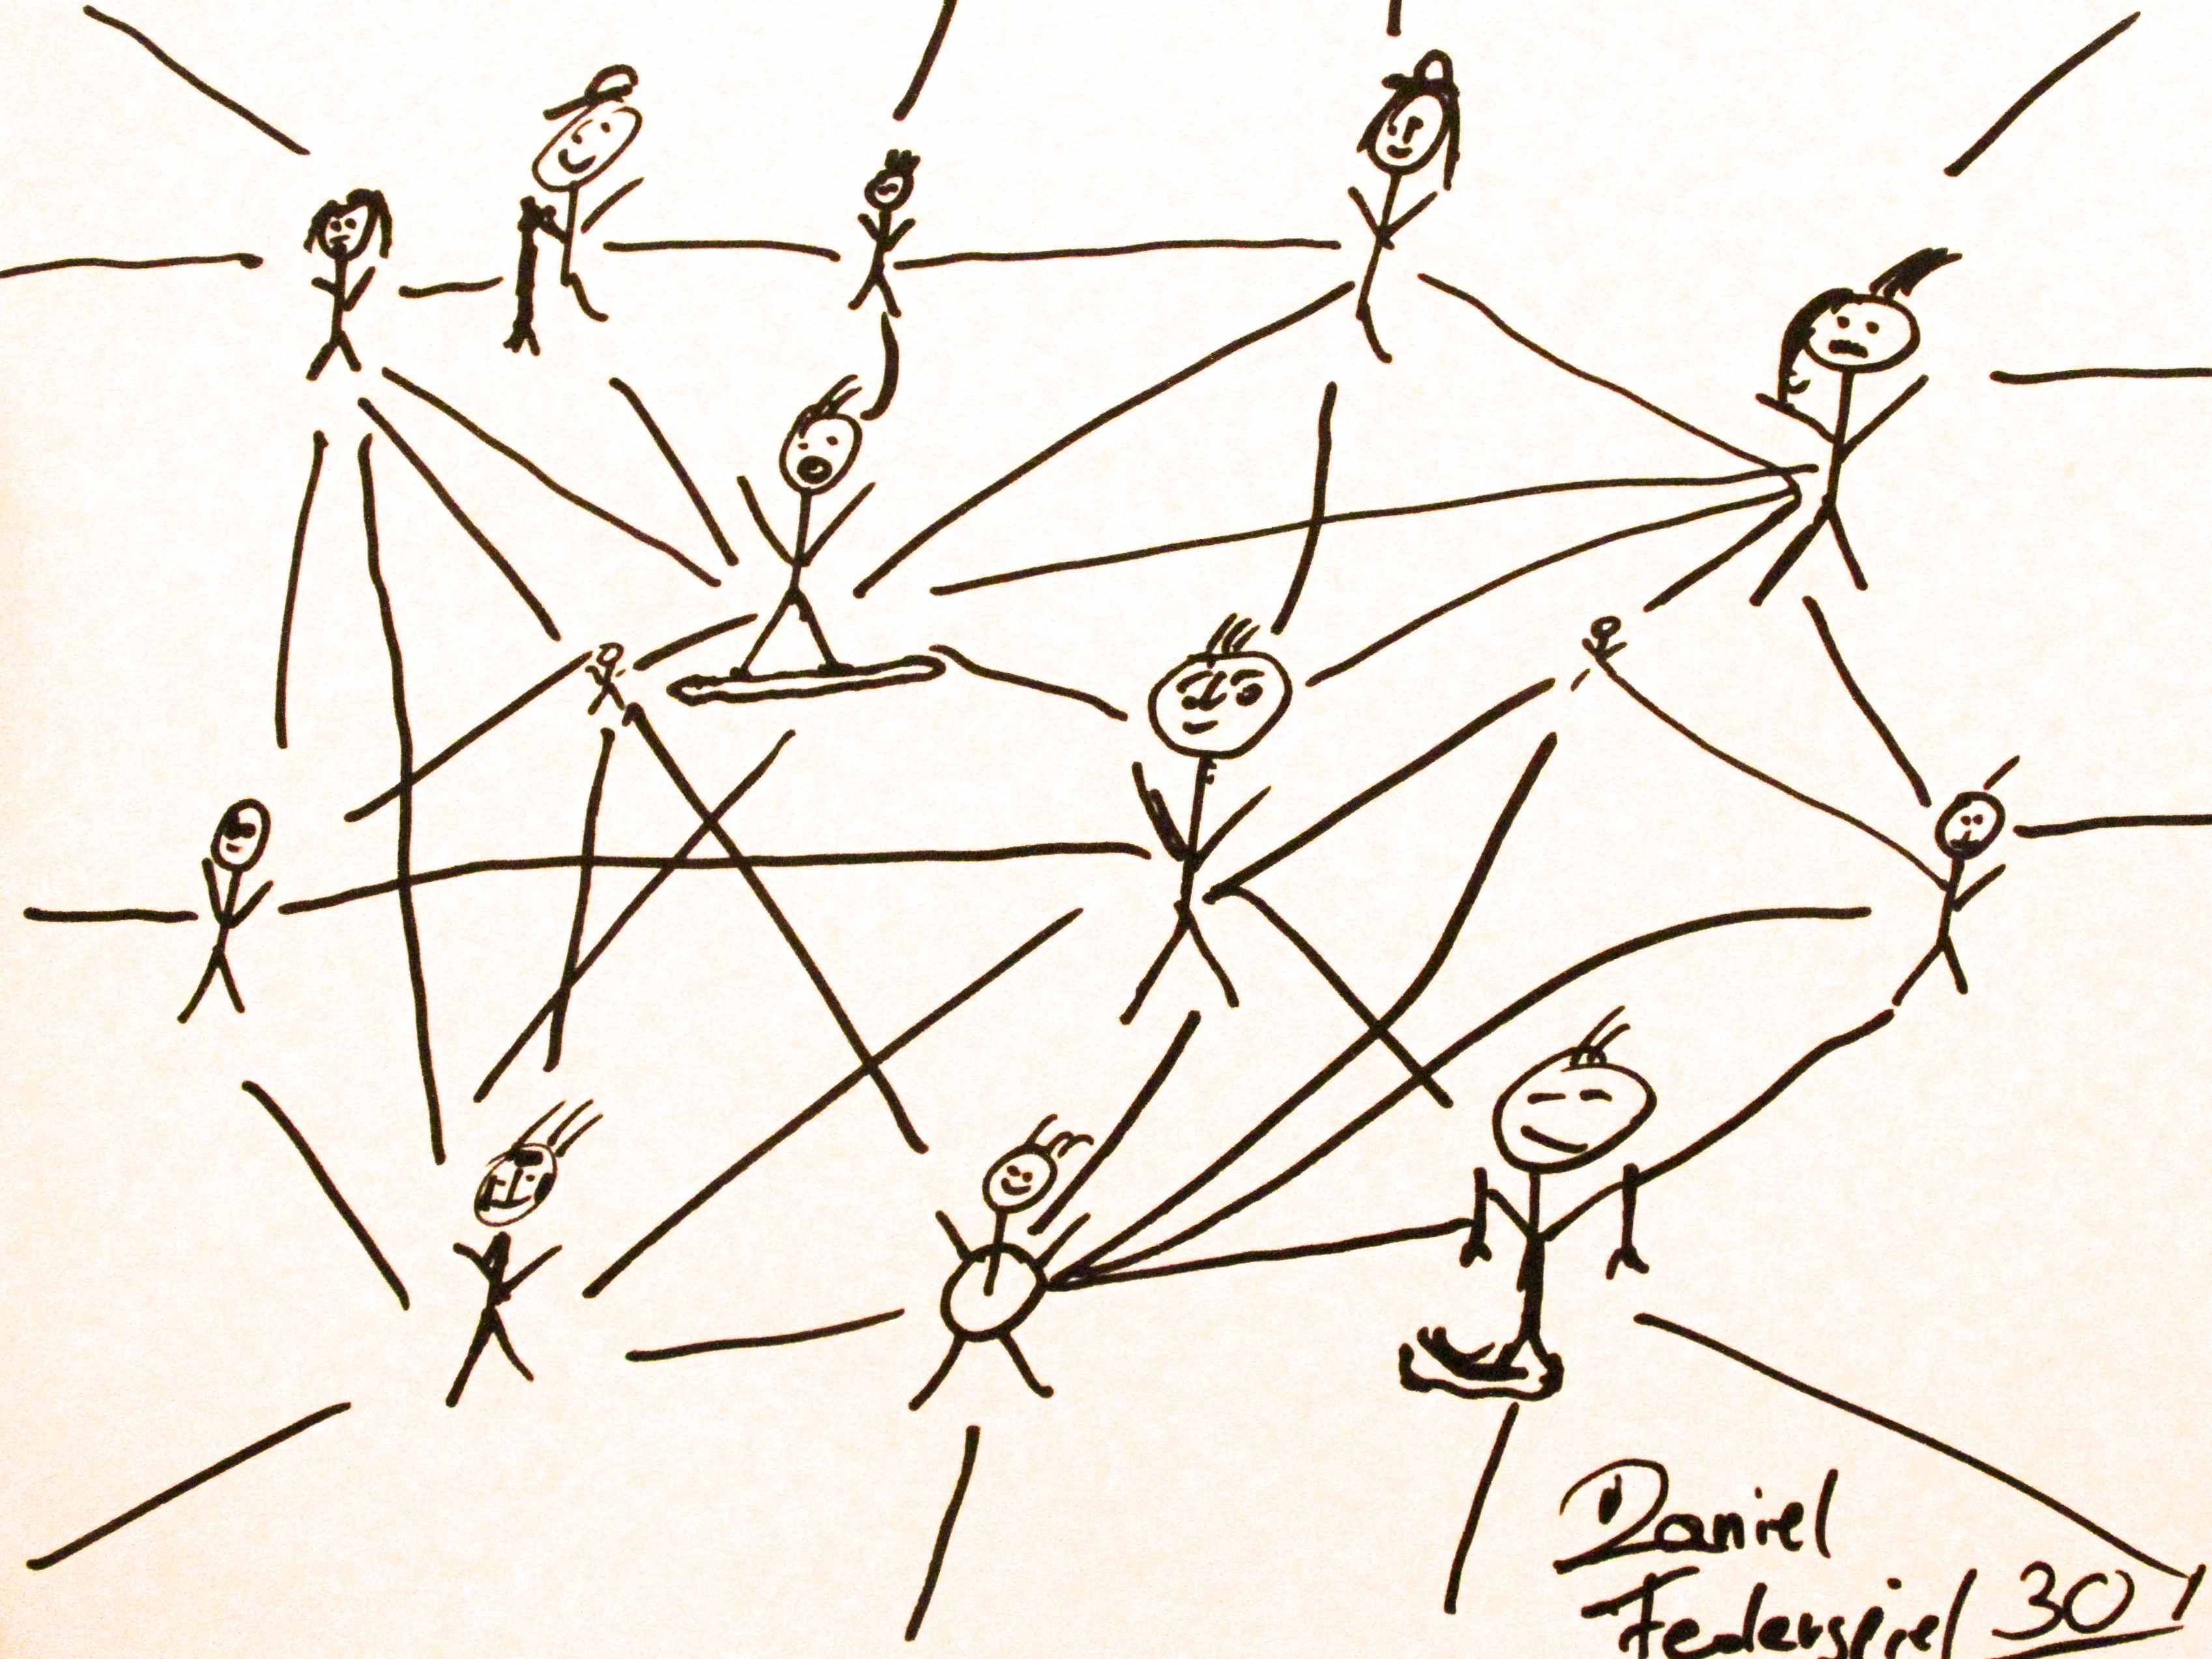 Daniel
Federspiel 30